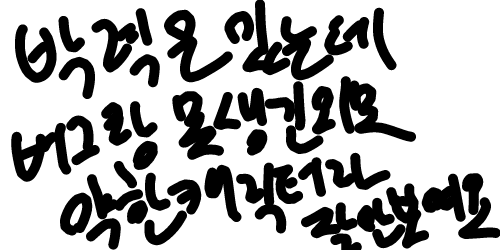 박력은 있는데
버그랑 못생긴외모
악한캐릭터라
잘안보예요